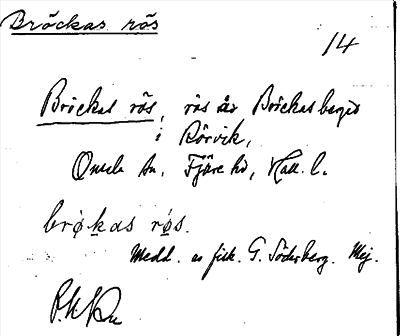 Bröckas rös
14
Bröckas rös, rös är Bröckas begvd
i Rörvik,
Onsala sn, Fjäre hd, Hall. l.
brøkas røs.
Medd. av fisk. G. Söderberg. Mej.